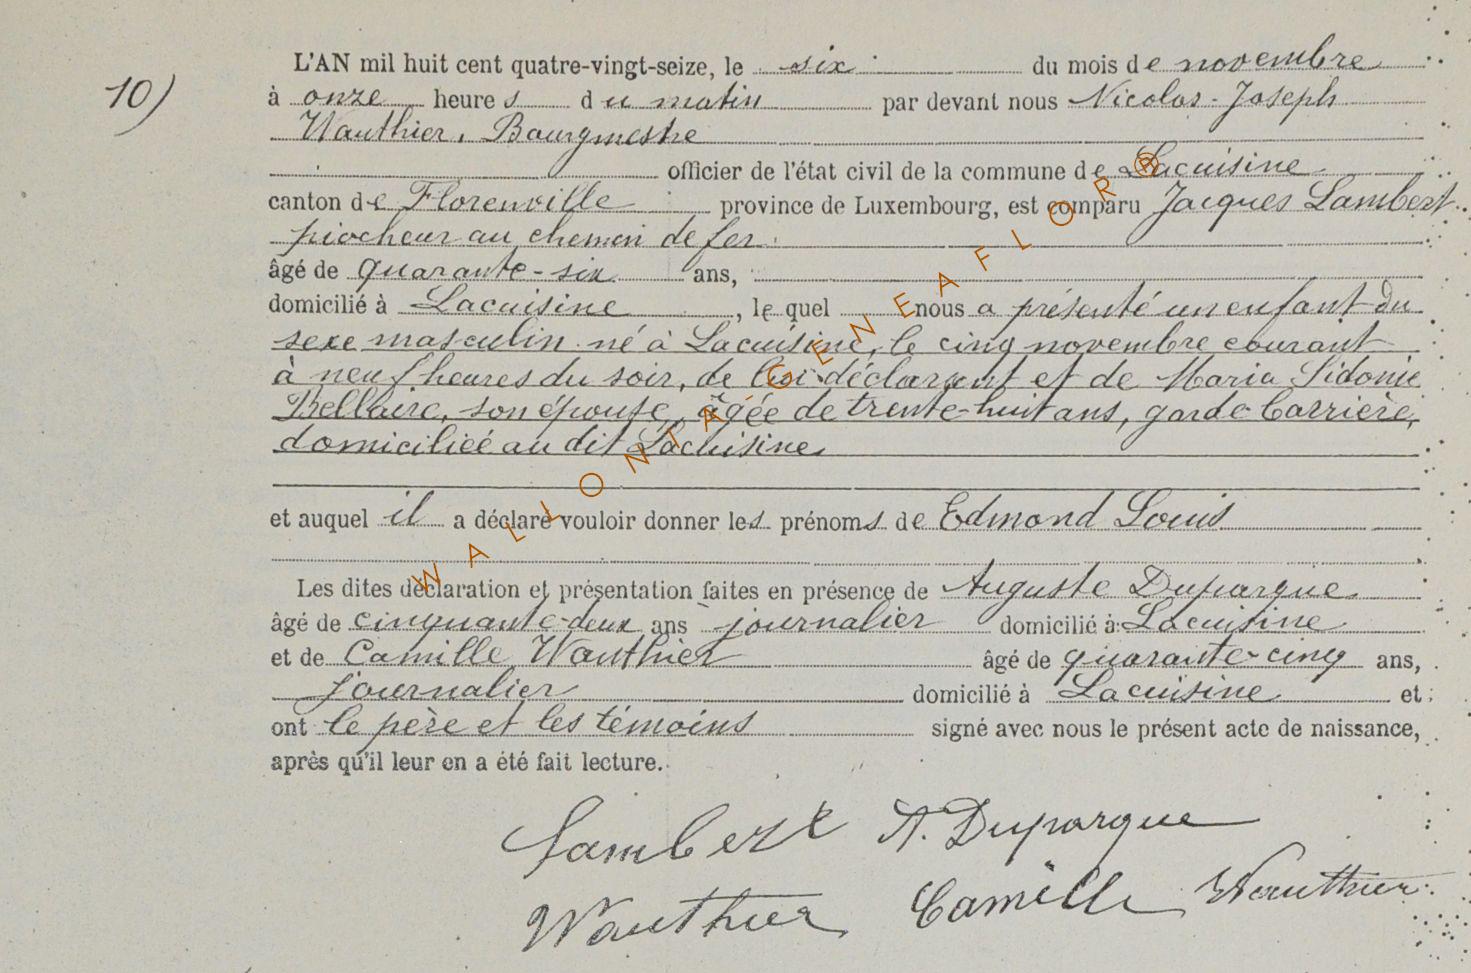 10)
L'AN mil huit cent quatre-vingt-seize, le six du mois de novembre
à onze heures du matin par devant nous Nicolas-Joseph
Wauthier, Bourgmestre
officier de l'état civil de la commune de Lacuisine
canton de Florenville province de Luxembourg, est comparu Jacques Lambert
piocheur au chemin de fer.
âgé de quarante-six ans,
domicilié à Lacuisine, lequel nous a présenté un enfant du
sexe masculin né à Lacuisine, le cinq novembre courant
à neuf heures du soir, de lui déclarant et de Maria Sidonie
Bellaire, son épouse, âgée de trente-huit ans, garde-barrière,
domiciliée au dit Lacuisine.
et auquel il a déclaré vouloir donner les prénoms de Edmond Louis
Les dites déclaration et présentation faites en présence de Auguste Duparque
âgé de cinquante-deux ans journalier domicilié à Lacuisine
et de Camille Wauthier âgé de quarante-cinq ans,
journalier domicilié à Lacuisine et
ont le père et les témoins signé avec nous le présent acte de naissance,
après qu'il leur en a été fait lecture.
Lambert A. Duparque
Wauthier Camille Wauthier
WALLONIA-GENEAFLOR®